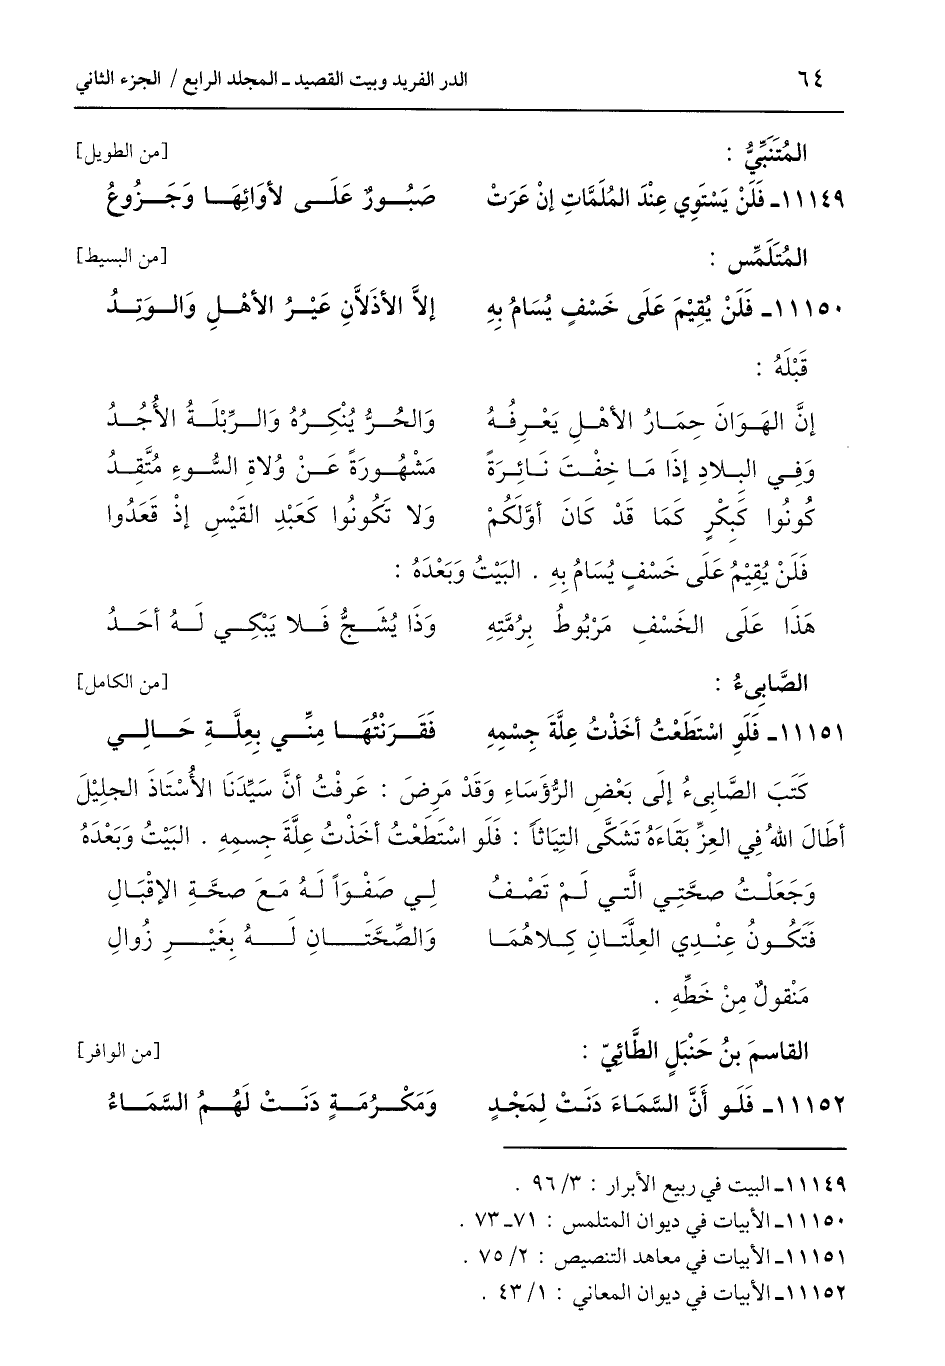 ٦٤ الدر الفريد وبيت القصيد ـ المجلد الرابع / الجزء الثاني
المُتَنَبِّيُّ : [من الطويل]
١١١٤٩ـ فَلَنْ يَسْتَوِي عِنْدَ المُلمَّاتِ إنْ عَرَتْ صَبُورٌ عَلَى لأوَائِهَا وَجَزُوعُ
المُتَلَمِّس : [من البسيط]
١١١٥٠ـ فَلَنْ يُقِيْمَ عَلَى خَسْفٍ يُسَامُ بِهِ إلاَّ الأذَلاَّنِ عَيْرُ الأهْلِ وَالوَتِدُ
قَبْلَهُ :
إنَّ الهَوَانَ حِمَارُ الأهْلِ يَعْرِفُهُ وَالحُرُّ يُنْكِرُهُ وَالرِّبْلَةُ الأُجُدُ
وَفِي البلادِ إذَا مَا خِفْتَ نَائِرَةً مَشْهُورَةً عَنْ وُلاةِ السُّوءِ مُتَّقِدُ
كُونُوا كَبَكْرٍ كَمَا قَدْ كَانَ أوَّلَكُمْ وَلا تَكُونُوا كَعَبْدِ القَيْسِ إذْ قَعَدُوا
فَلَنْ يُقِيْمُ عَلَى خَسْفٍ يُسَامُ بِهِ . البَيْتُ وَبَعْدَهُ :
هَذَا عَلَى الخَسْفِ مَرْبُوطُ بِرُمَّتِهِ وَذَا يُشَجُّ فَلا يَبْكِي لَهُ أحَدُ
الصَّابِىءُ : [من الكامل]
١١١٥١ـ فَلَوِ اسْتَطَعْتُ أخَذْتُ عِلَّةَ جِسْمِهِ فَقَرَنْتُهَا مِنِّي بِعِلَّةِ حَالِي
كَتَبَ الصَّابِىءُ إلَى بَعْضِ الرُّؤَسَاءِ وَقَدْ مَرِضَ : عَرفْتُ أنَّ سَيِّدَنَا الأُسْتَاذَ الجليْلَ
أطَالَ اللهُ فِي العِزِّ بَقَاءَهُ تَشَكَّى التِيَاثاً : فَلَو اسْتَطَعْتُ أخَذْتُ عِلَّةَ جِسمِهِ . البَيْتُ وَبَعْدَهُ
وَجَعَلْتُ صحَّتِي الَّتِي لَمْ تَصْفُ لِي صَفْوَاً لَهُ مَعَ صحَّةِ الإقْبَالِ
فَتَكُونُ عِنْدِي العِلَّتَانِ كِلاهُمَا وَالصِّحَّتَانِ لَهُ بِغَيْرِ زُوالِ
مَنْقولٌ مِنْ خَطِّهِ .
القاسمَ بنُ حَنْبَلٍ الطَّائِيّ : [من الوافر]
١١١٥٢ـ فَلَو أَنَّ السَّمَاءَ دَنَتْ لِمَجْدٍ وَمَكْرُمَةٍ دَنَتْ لَهُمُ السَّمَاءُ
١١١٤٩ـ البيت في ربيع الأبرار : ٣/ ٩٦ .
١١١٥٠ـ الأبيات في ديوان المتلمس : ٧١ـ ٧٣ .
١١١٥١ـ الأبيات في معاهد التنصيص : ٢/ ٧٥ .
١١١٥٢ـ الأبيات في ديوان المعاني : ١/ ٤٣ .